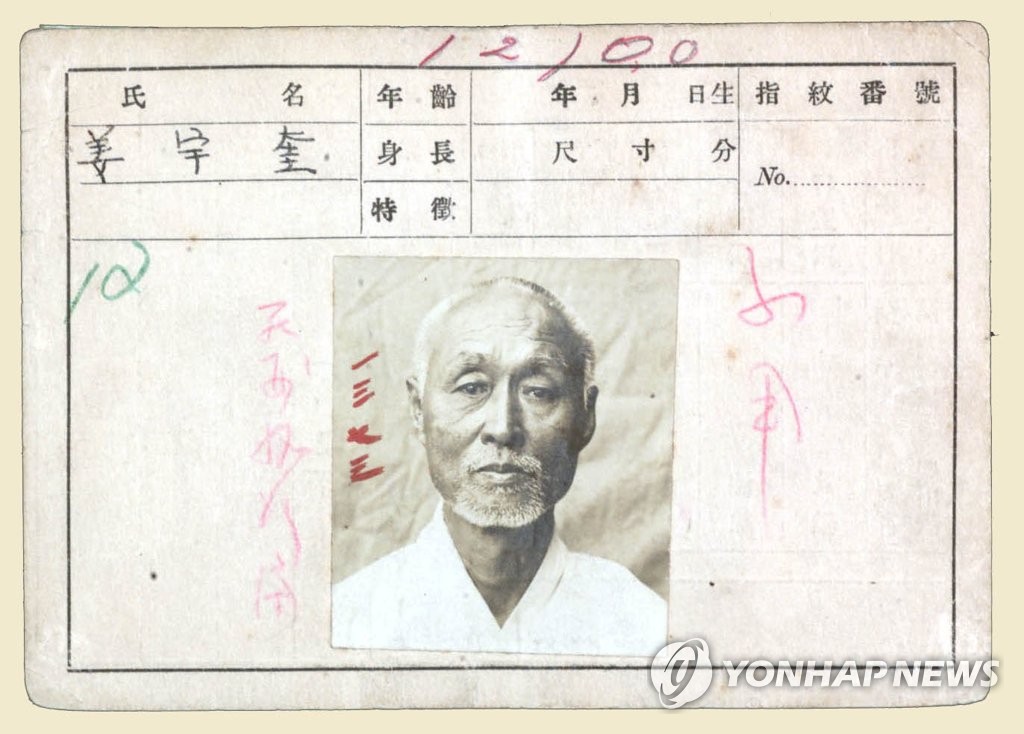 12100
氏 名 年齡 年 月 日生 指紋番號
姜宇奎 身長 尺 寸 分 No.
特徵
12
一三七三
不用
YONHAP NEWS